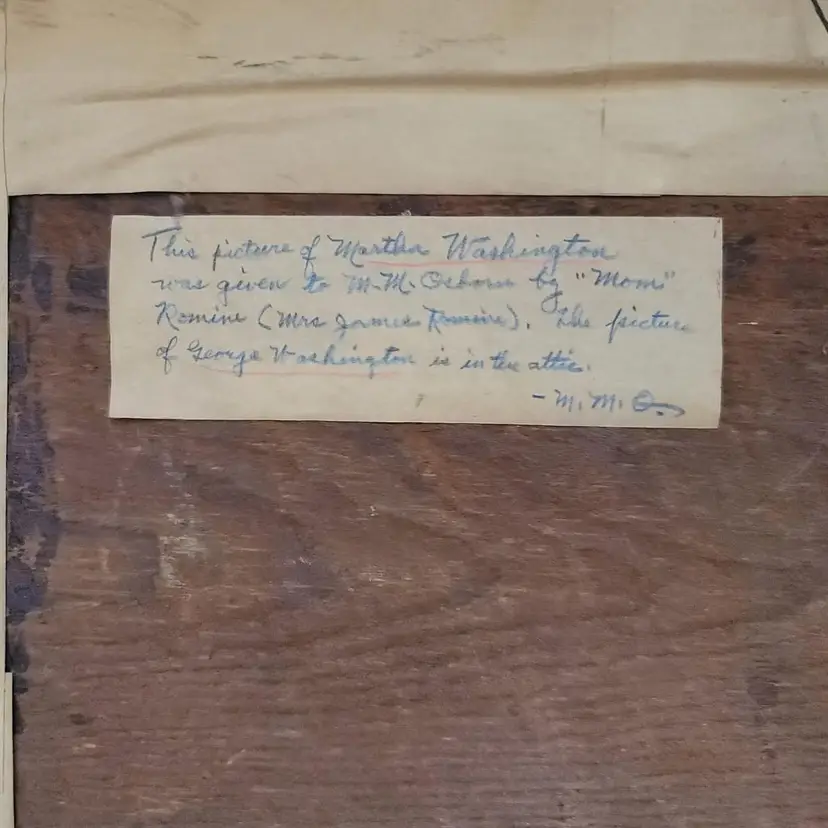 This picture of Martha Washington
was given to M.M. Osborn by "Mom"
Romine (Mrs James Romine). The picture
of George Washington is in the attic.
- M. M. O.